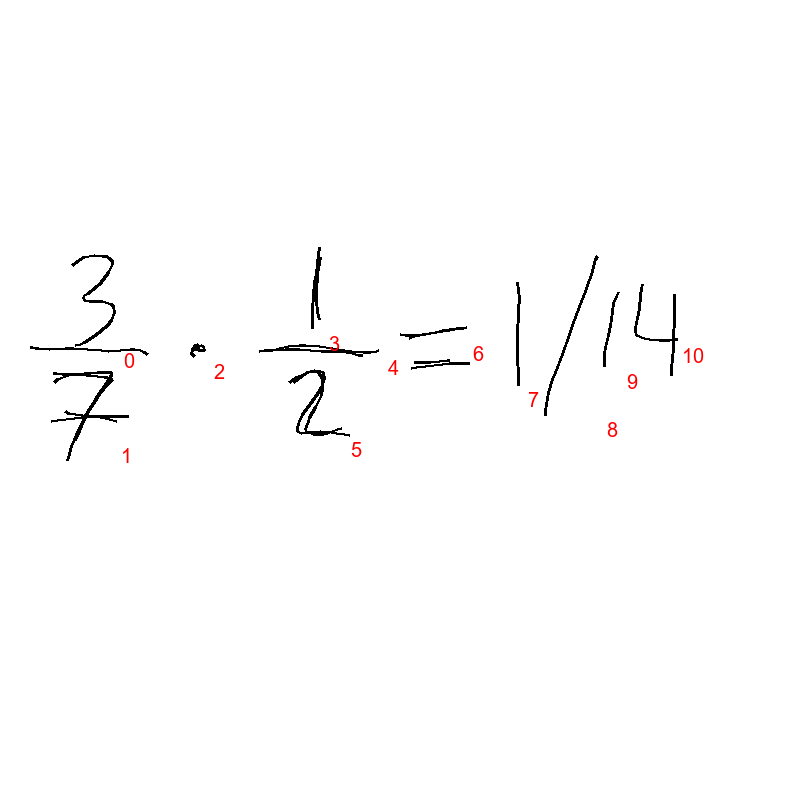 3/7 · 1/2 = 1/14
0 1 2 3 4 5 6 7 8 9 10